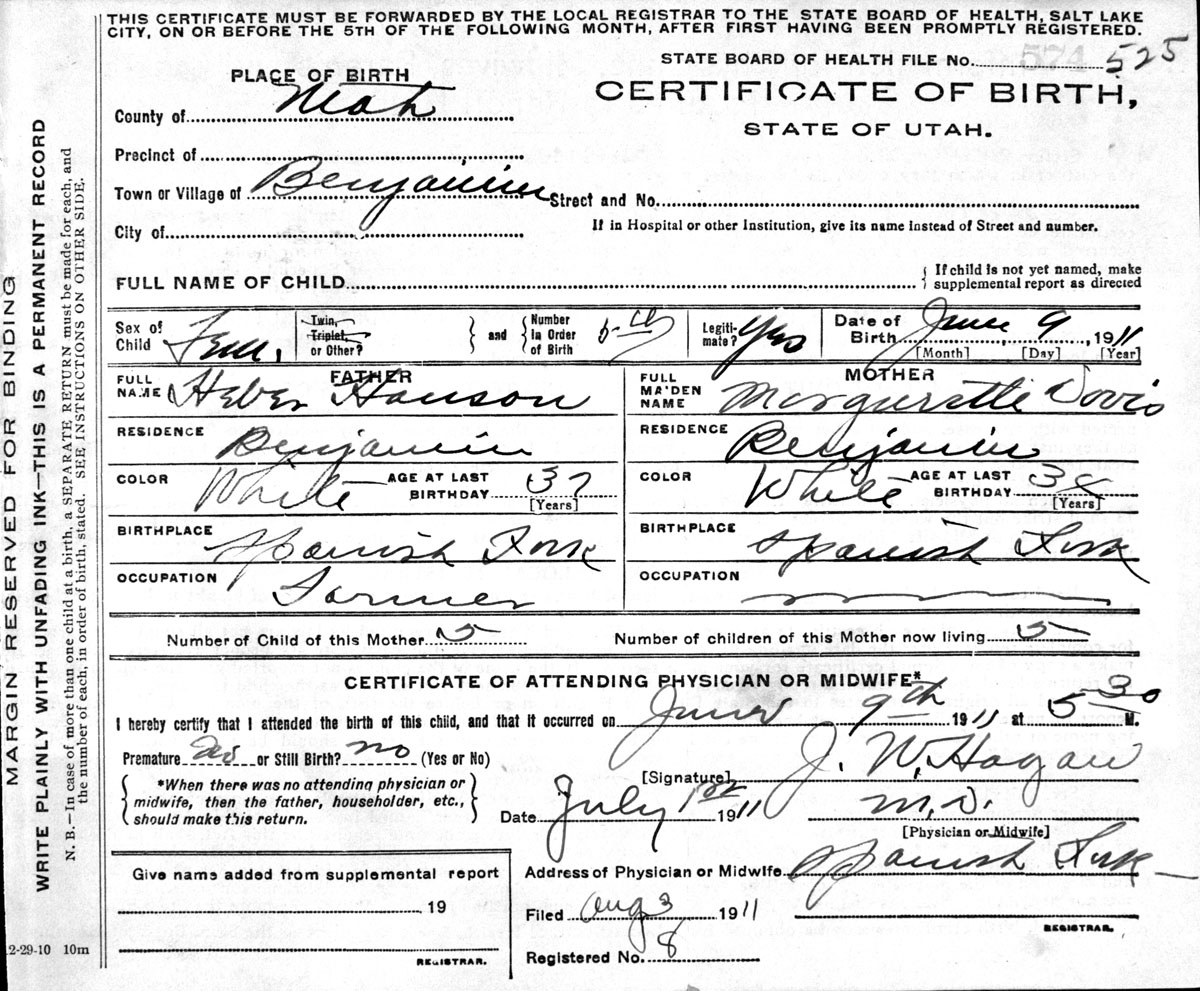 THIS CERTIFICATE MUST BE FORWARDED BY THE LOCAL REGISTRAR TO THE STATE BOARD OF HEALTH, SALT LAKE
CITY, ON OR BEFORE THE 5TH OF THE FOLLOWING MONTH, AFTER FIRST HAVING BEEN PROMPTLY REGISTERED.
STATE BOARD OF HEALTH FILE No. 574 525
PLACE OF BIRTH
CERTIFICATE OF BIRTH,
STATE OF UTAH.
County of Utah
Precinct of
Town or Village of Benjamin Street and No.
City of
If in Hospital or other Institution, give its name instead of Street and number.
FULL NAME OF CHILD
If child is not yet named, make
supplemental report as directed
Sex of Child Fem. Twin, Triplet, or Other? and Number in Order of Birth 5th Legitimate? Yes Date of Birth June 9 1911
[Month] [Day] [Year]
FATHER MOTHER
FULL NAME Heber Hanson FULL MAIDEN NAME Margurette Davis
RESIDENCE Benjamin RESIDENCE Benjamin
COLOR White AGE AT LAST BIRTHDAY 37 [Years] COLOR White AGE AT LAST BIRTHDAY [Years]
BIRTHPLACE Spanish Fork BIRTHPLACE Spanish Fork
OCCUPATION Farmer OCCUPATION
Number of Child of this Mother 5 Number of children of this Mother now living 5
CERTIFICATE OF ATTENDING PHYSICIAN OR MIDWIFE*
I hereby certify that I attended the birth of this child, and that it occurred on June 9th 1911, at 5 30 M.
Premature or Still Birth? no (Yes or No)
*When there was no attending physician or
midwife, then the father, householder, etc.,
should make this return.
[Signature] J. W. Hagan
Date July 1st 1911 M.D.
[Physician or Midwife]
Address of Physician or Midwife Spanish Fork
Give name added from supplemental report
19
REGISTRAR.
Filed Aug 3 1911
REGISTRAR.
Registered No. 8
2-29-10 10m
MARGIN RESERVED FOR BINDING
WRITE PLAINLY WITH UNFADING INK—THIS IS A PERMANENT RECORD
N. B.—In case of more than one child at a birth, a SEPARATE RETURN must be made for each, and
the number of each, in order of birth, stated. SEE INSTRUCTIONS ON OTHER SIDE.